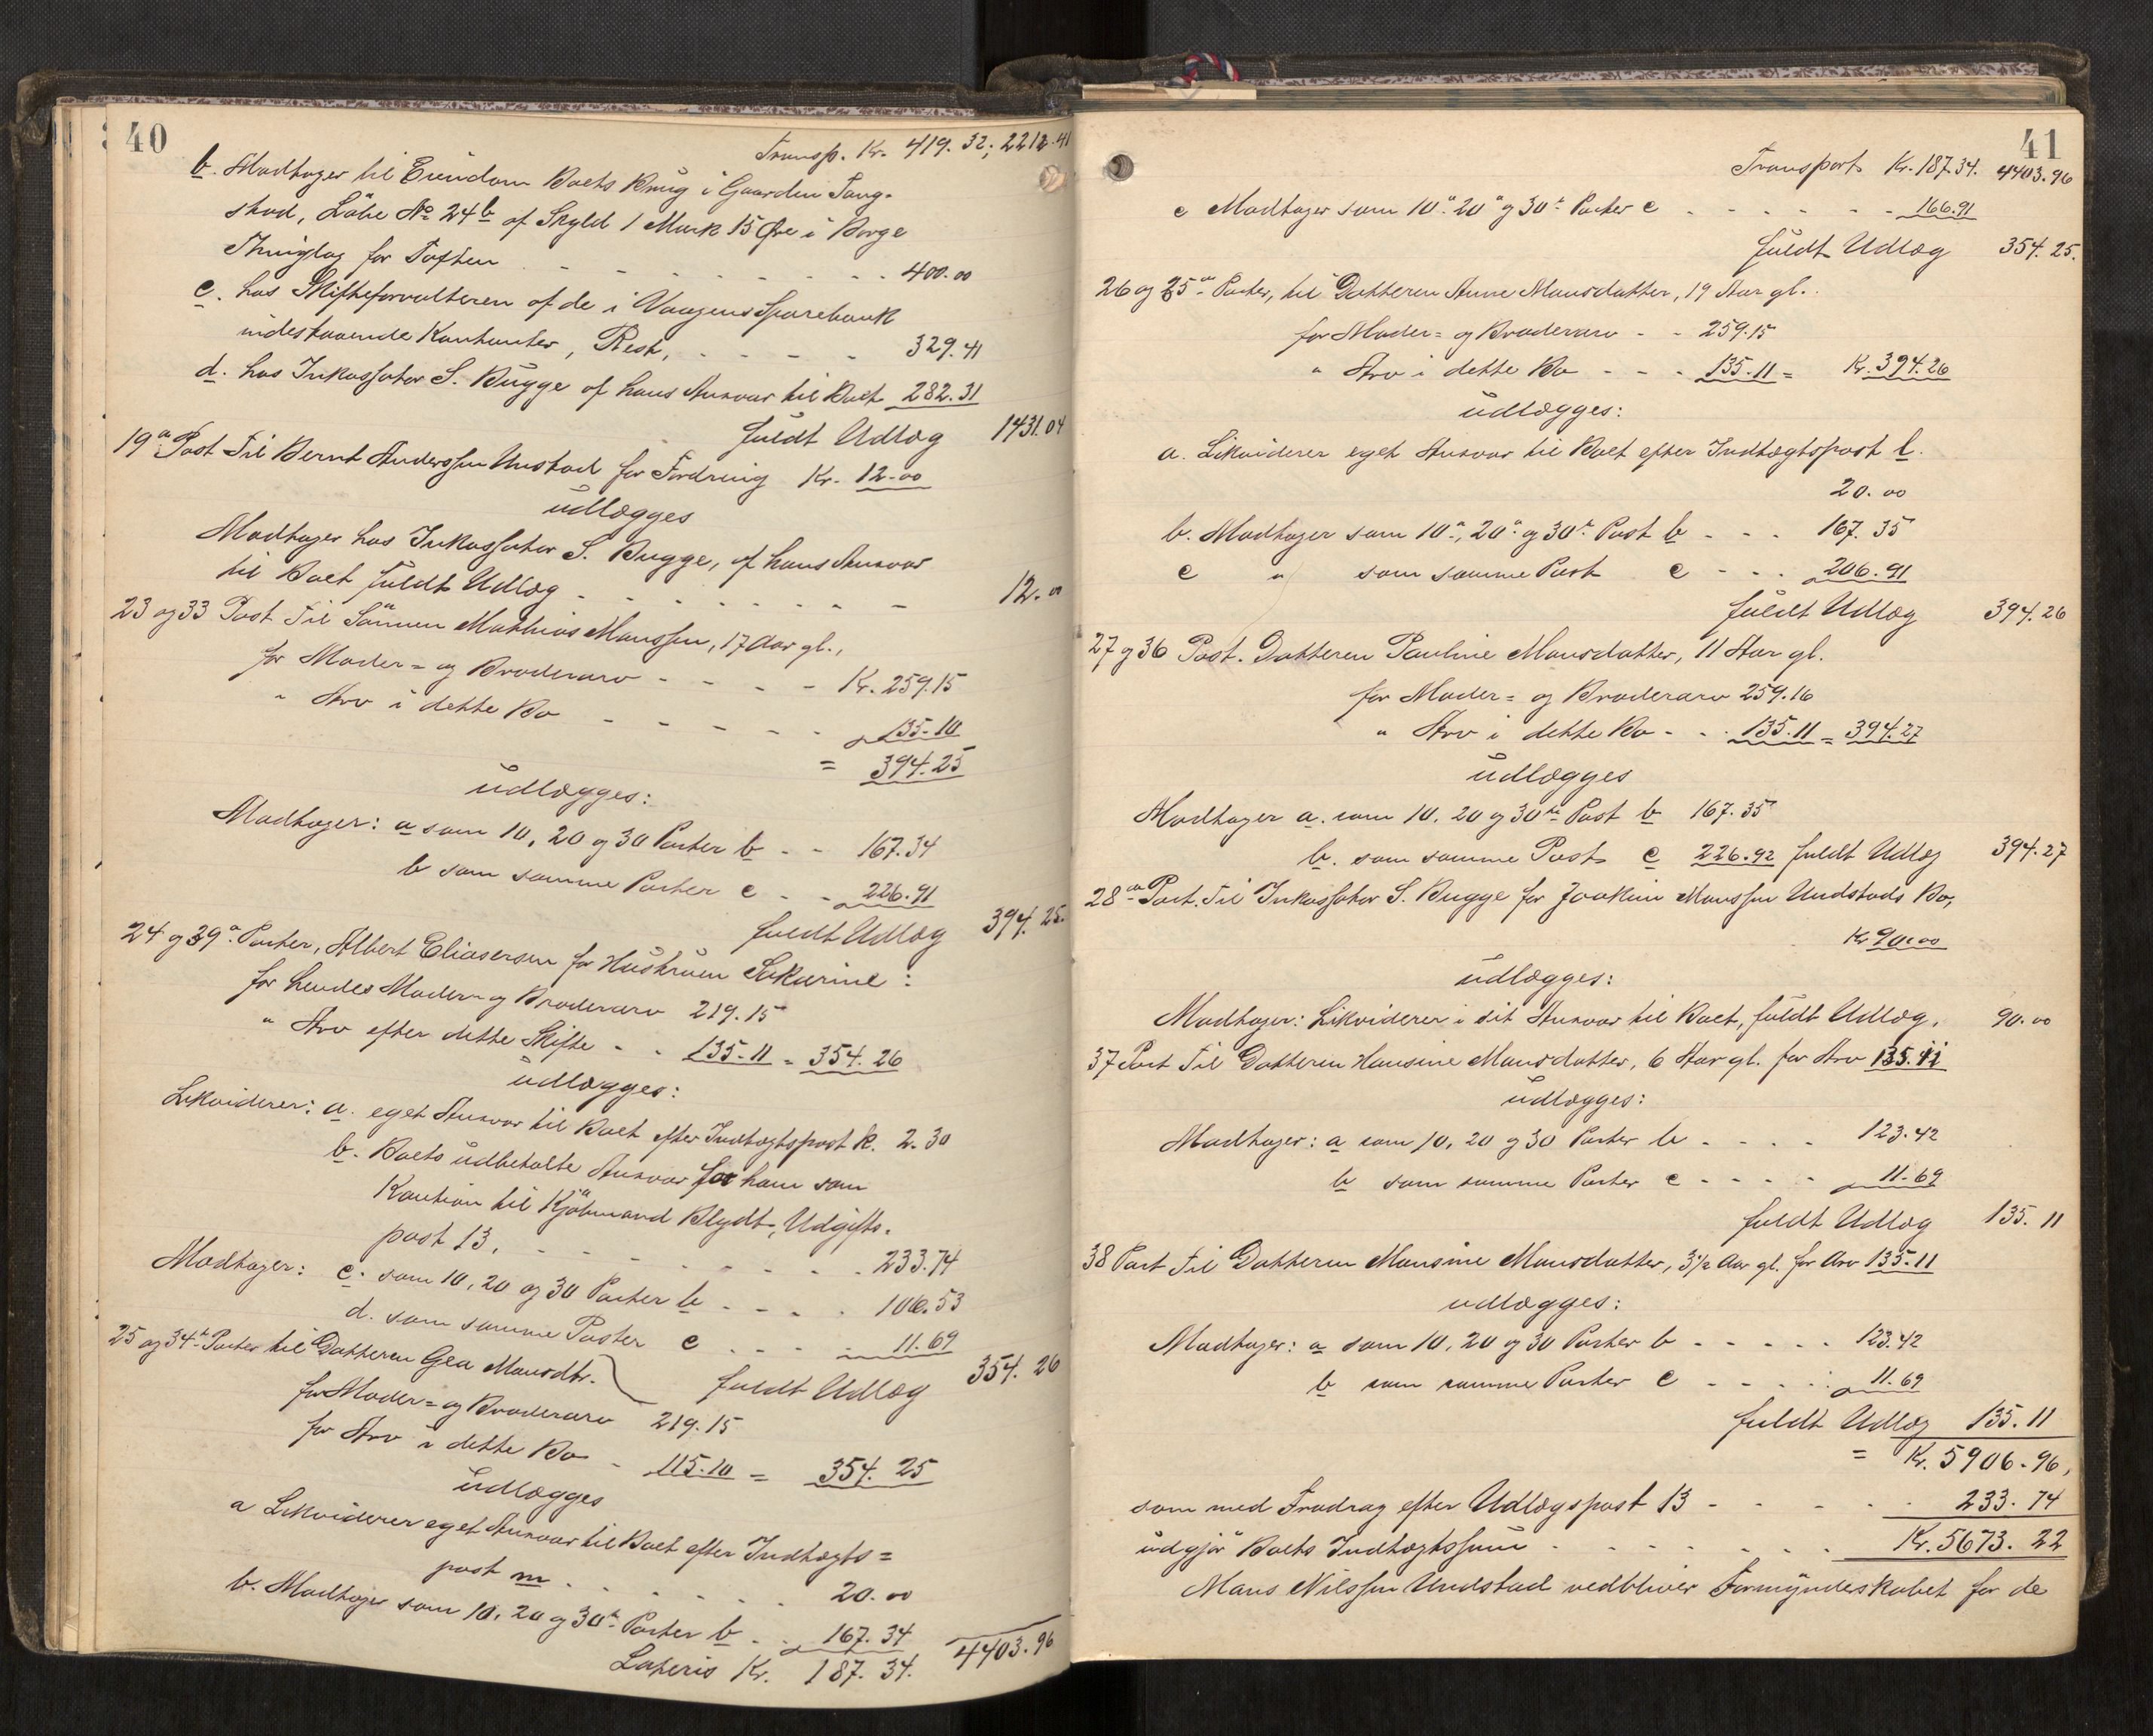 40
Transp. Kr. 419.32; 2212.41
b. Modtager til Eiendom Boets Brug i Gaarden Tang-
stad, Löbe No 24b af Skyld 1 Mark 15 Øre i Borge
Thinglag for Taxten - - - 400.00
c. hos Skifteforvalteren af de i Vaagens Sparebank
indestaaende Kontanter, Rest, - - - 329.41
d. hos Inkassator S. Bugge af hans Ansvar til Boet 282.31
fuldt Udlæg 1431.04
19de Post Til Bernt Anderssen Unstad for Fordring Kr. 12.00
udlægges
Modtager hos Inkassator S. Bugge, af hans Ansvar
til Boet fuldt Udlæg - - - 12.00
23 og 33 Post Til Sönnen Mathias Monssen, 17 Aar gl.,
for Moder= og Broderarv - - - Kr. 259.15
" Arv i dette Bo - - - 135.10
= 394.25
udlægges:
Modtager: a som 10, 20 og 30 Poster b - - 167.34
b som samme Poster c - - 226.91
fuldt Udlæg 394.25.
24 og 39de Poster, Albert Eliasersen for Hustruen Sakarine:
for hendes Moder- og Broderarv 219.15
" Arv efter dette Skifte - - 135.11 = 354.26
udlægges:
Likviderer: a. eget Ansvar til Boet efter Indtægtspost k. 2.30
b. Boets udbetalte Ansvar for ham som
Kaution til Kjöbmand Blydt, Udgifts-
post 13, - - - 233.74
Modtager: c. som 10, 20 og 30 Poster b - - - 106.53
d. som samme Poster c - - - 11.69
fuldt Udlæg 354.26
25 og 34te Poster til Datteren Gea Monsdtr.
for Moder= og Broderarv 219.15
for Arv i dette Bo - 115.10 = 354.25
udlægges
a Likviderer eget Ansvar til Boet efter Indtægts=
post m - - - 20.00
b. Modtager som 10, 20 og 30te Poster b - - 167.34
Lateris Kr. 187.34. 4403.96
41
Transport Kr. 187.34. 4403.96
c Modtager som 10de 20de og 30te Poster c - - - 166.91
fuldt Udlæg 354.25.
26 og 35de Poster, til Datteren Anne Monsdatter, 19 Aar gl.
for Moder= og Broderarv - - 259.15
" Arv i dette Bo - - - 135.11 = Kr. 394.26
udlægges:
a. Likviderer eget Ansvar til Boet efter Indtægtspost l.
20.00
b. Modtager som 10de, 20de og 30te Post b - - - 167.35
c " som samme Post c - - - 206.91
fuldt Udlæg 394.26
27 og 36 Post. Datteren Pauline Monsdatter, 11 Aar gl.
for Moder= og Broderarv 259.16
" Arv i dette Bo - - - 135.11 = 394.27
udlægges
Modtager a. som 10, 20 og 30te Post b 167.35
b. som samme Post c 226.92 fuldt Udlæg 394.27
28de Post. Til Inkassator S. Bugge for Joakim Monssen Undstads Bo,
Kr 90.00
udlægges:
Modtager: Likviderer i sit Ansvar til Boet, fuldt Udlæg, 90.00
37 Post Til Datteren Hansine Monsdatter, 6 Aar gl. for Arv 135.11
udlægges:
Modtager: a som 10, 20 og 30 Poster b - - - - 123.42
b som samme Poster c - - - - 11.69
fuldt Udlæg 135.11
38 Post Til Datteren Monsine Monsdatter, 3½ Aar gl. for Arv 135.11
udlægges:
Modtager: a som 10, 20 og 30 Poster b - - - - 123.42
b som samme Poster c - - - - 11.69
fuldt Udlæg 135.11
= Kr. 5906.96,
som med Fradrag efter Udlægspost 13 - - - 233.74
udgjör Boets Indtægtssum - - - Kr. 5673.22
Mons Nilssen Undstad vedbliver Formynderskabet for de